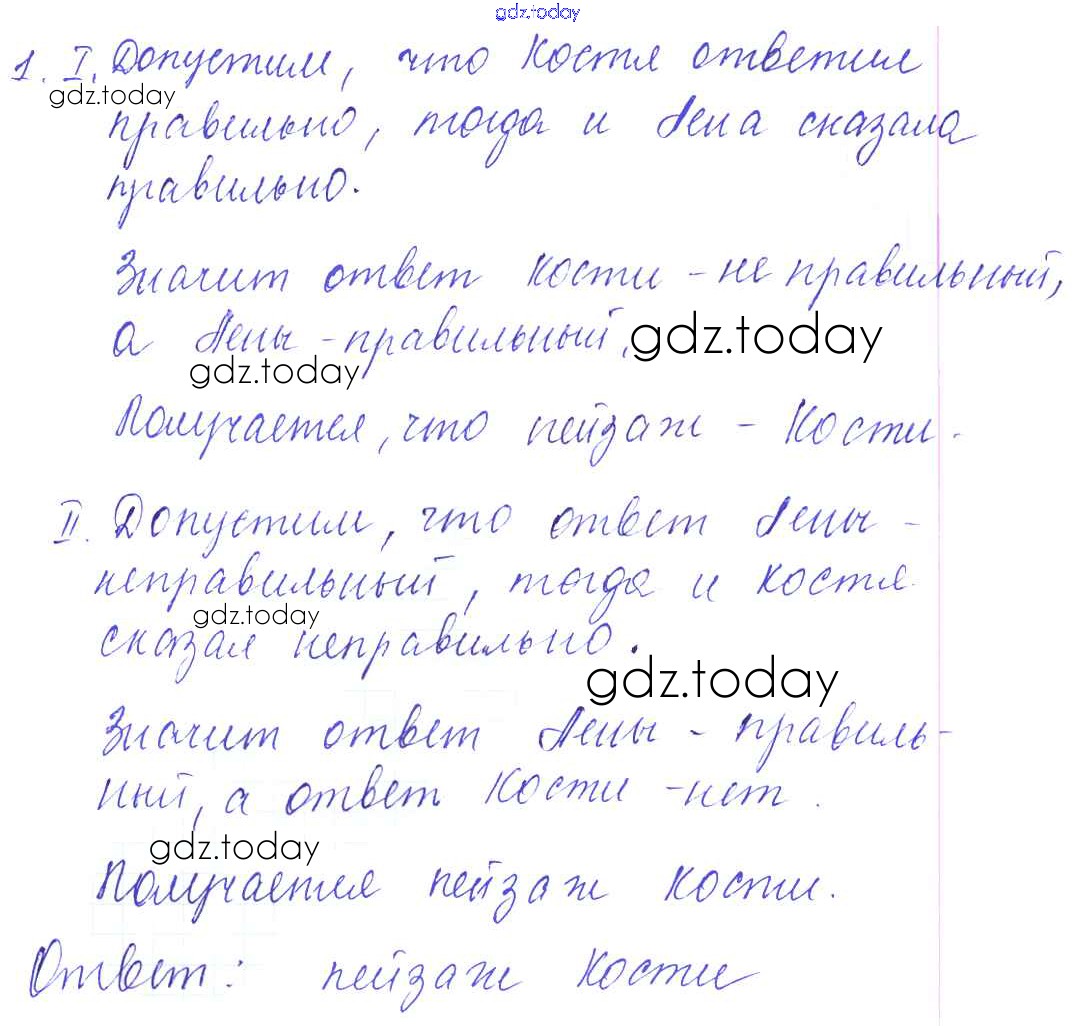 gdz.today
1. I. Допустим, что Костя ответил
gdz.today
правильно, тогда и Лена сказала
правильно.
Значит ответ Кости - не правильный,
а Лены - правильный.
gdz.today
gdz.today
Получается, что пейзаж - Кости.
II. Допустим, что ответ Лены -
неправильный, тогда и Костя
gdz.today
сказал неправильно.
gdz.today
Значит ответ Лены - правиль-
ный, а ответ Кости - нет.
gdz.today
Получается пейзаж Кости.
Ответ: пейзаж Кости